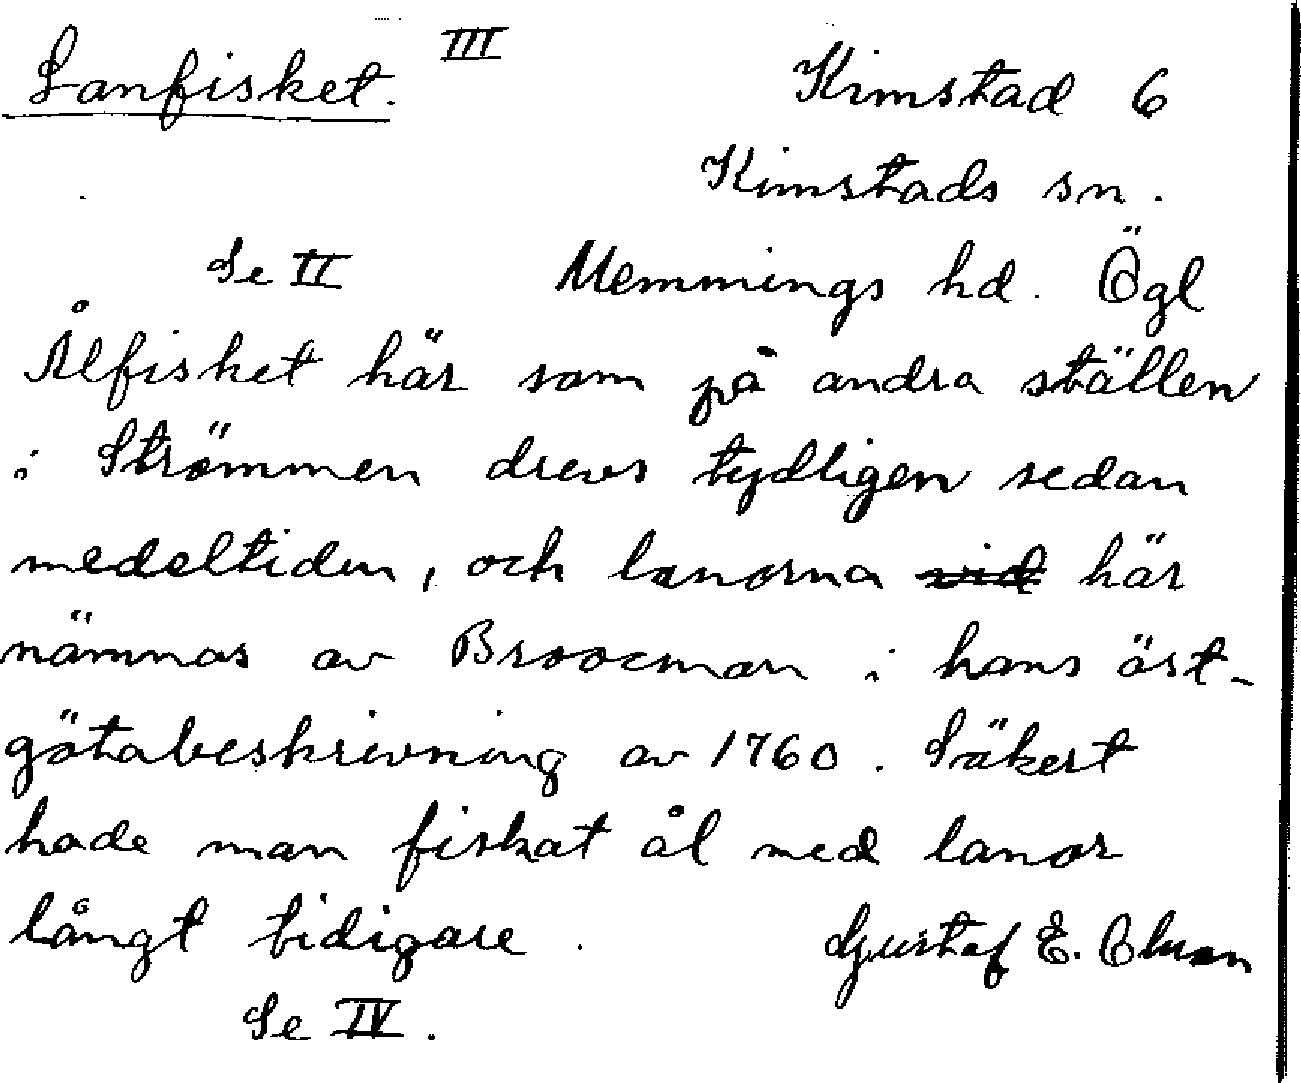 Lanfisket. III Kimstad 6
Kimstads sn.
Se II Memmings hd. Ögl
Ålfisket här som på andra ställen
i Strömmen drevs tydligen sedan
medeltiden, och lanorna ~~vid~~ här
nämnas av Broocman i hans öst-
götabeskrivning av 1760. Säkert
hade man fiskat ål med lanor
långt tidigare.
Gustaf E. Olsson
Se IV.